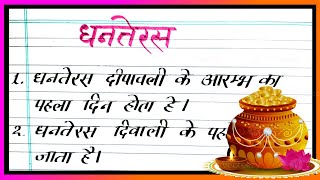 धनतेरस
1. धनतेरस दीपावली के आरम्भ का
पहला दिन होता है।
2. धनतेरस दिवाली के
जाता है।